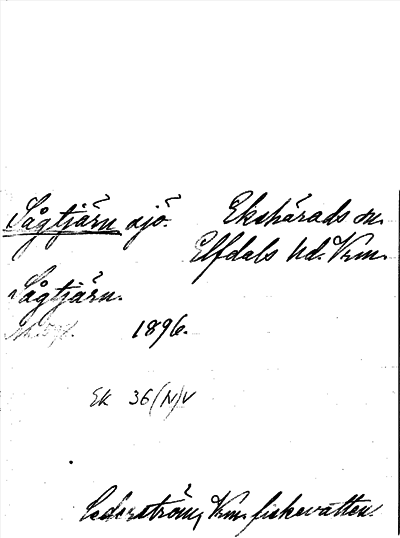 Sågtjärn sjö. Ekshärads sn.
Elfdals hd. Vrm.
Sågtjärn.
1896.
Ek 36 (N)V
Cederström, Vrm. fiskevatten.